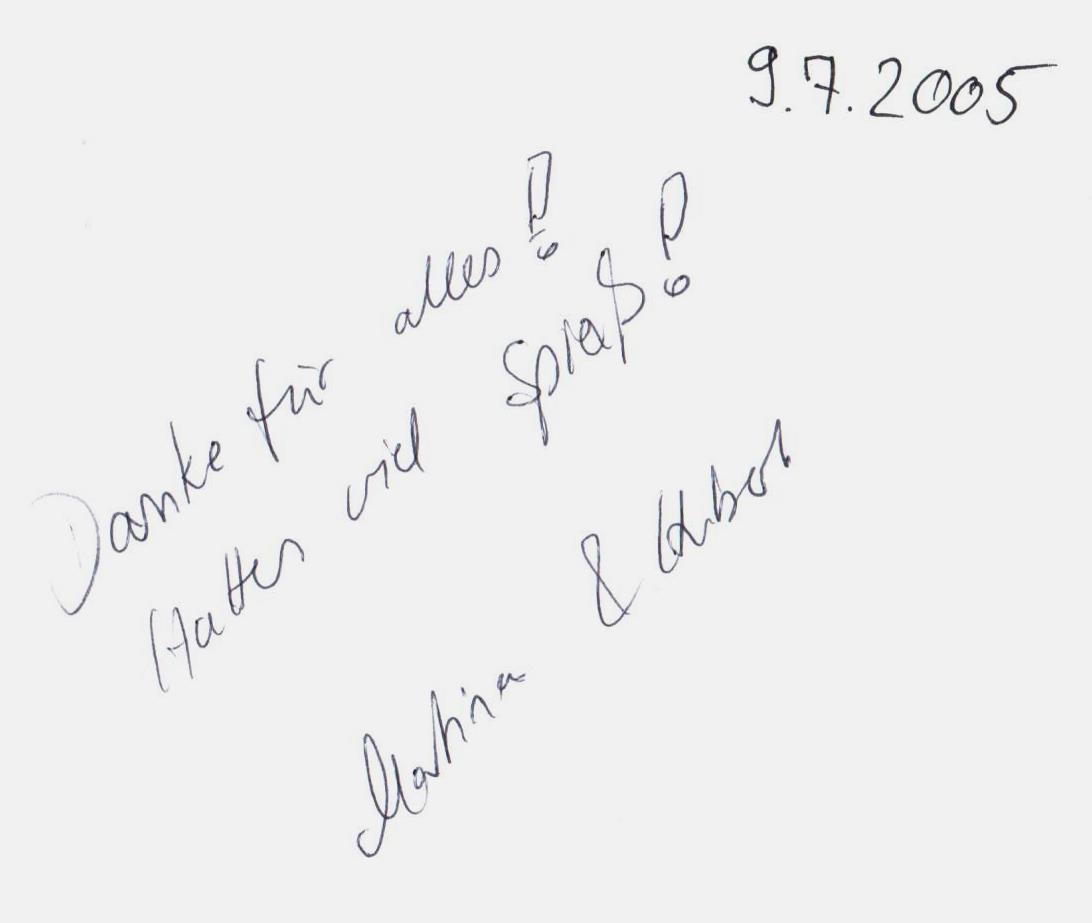 9.7.2005
Danke für alles!
Hatten viel Spaß!
Martina &